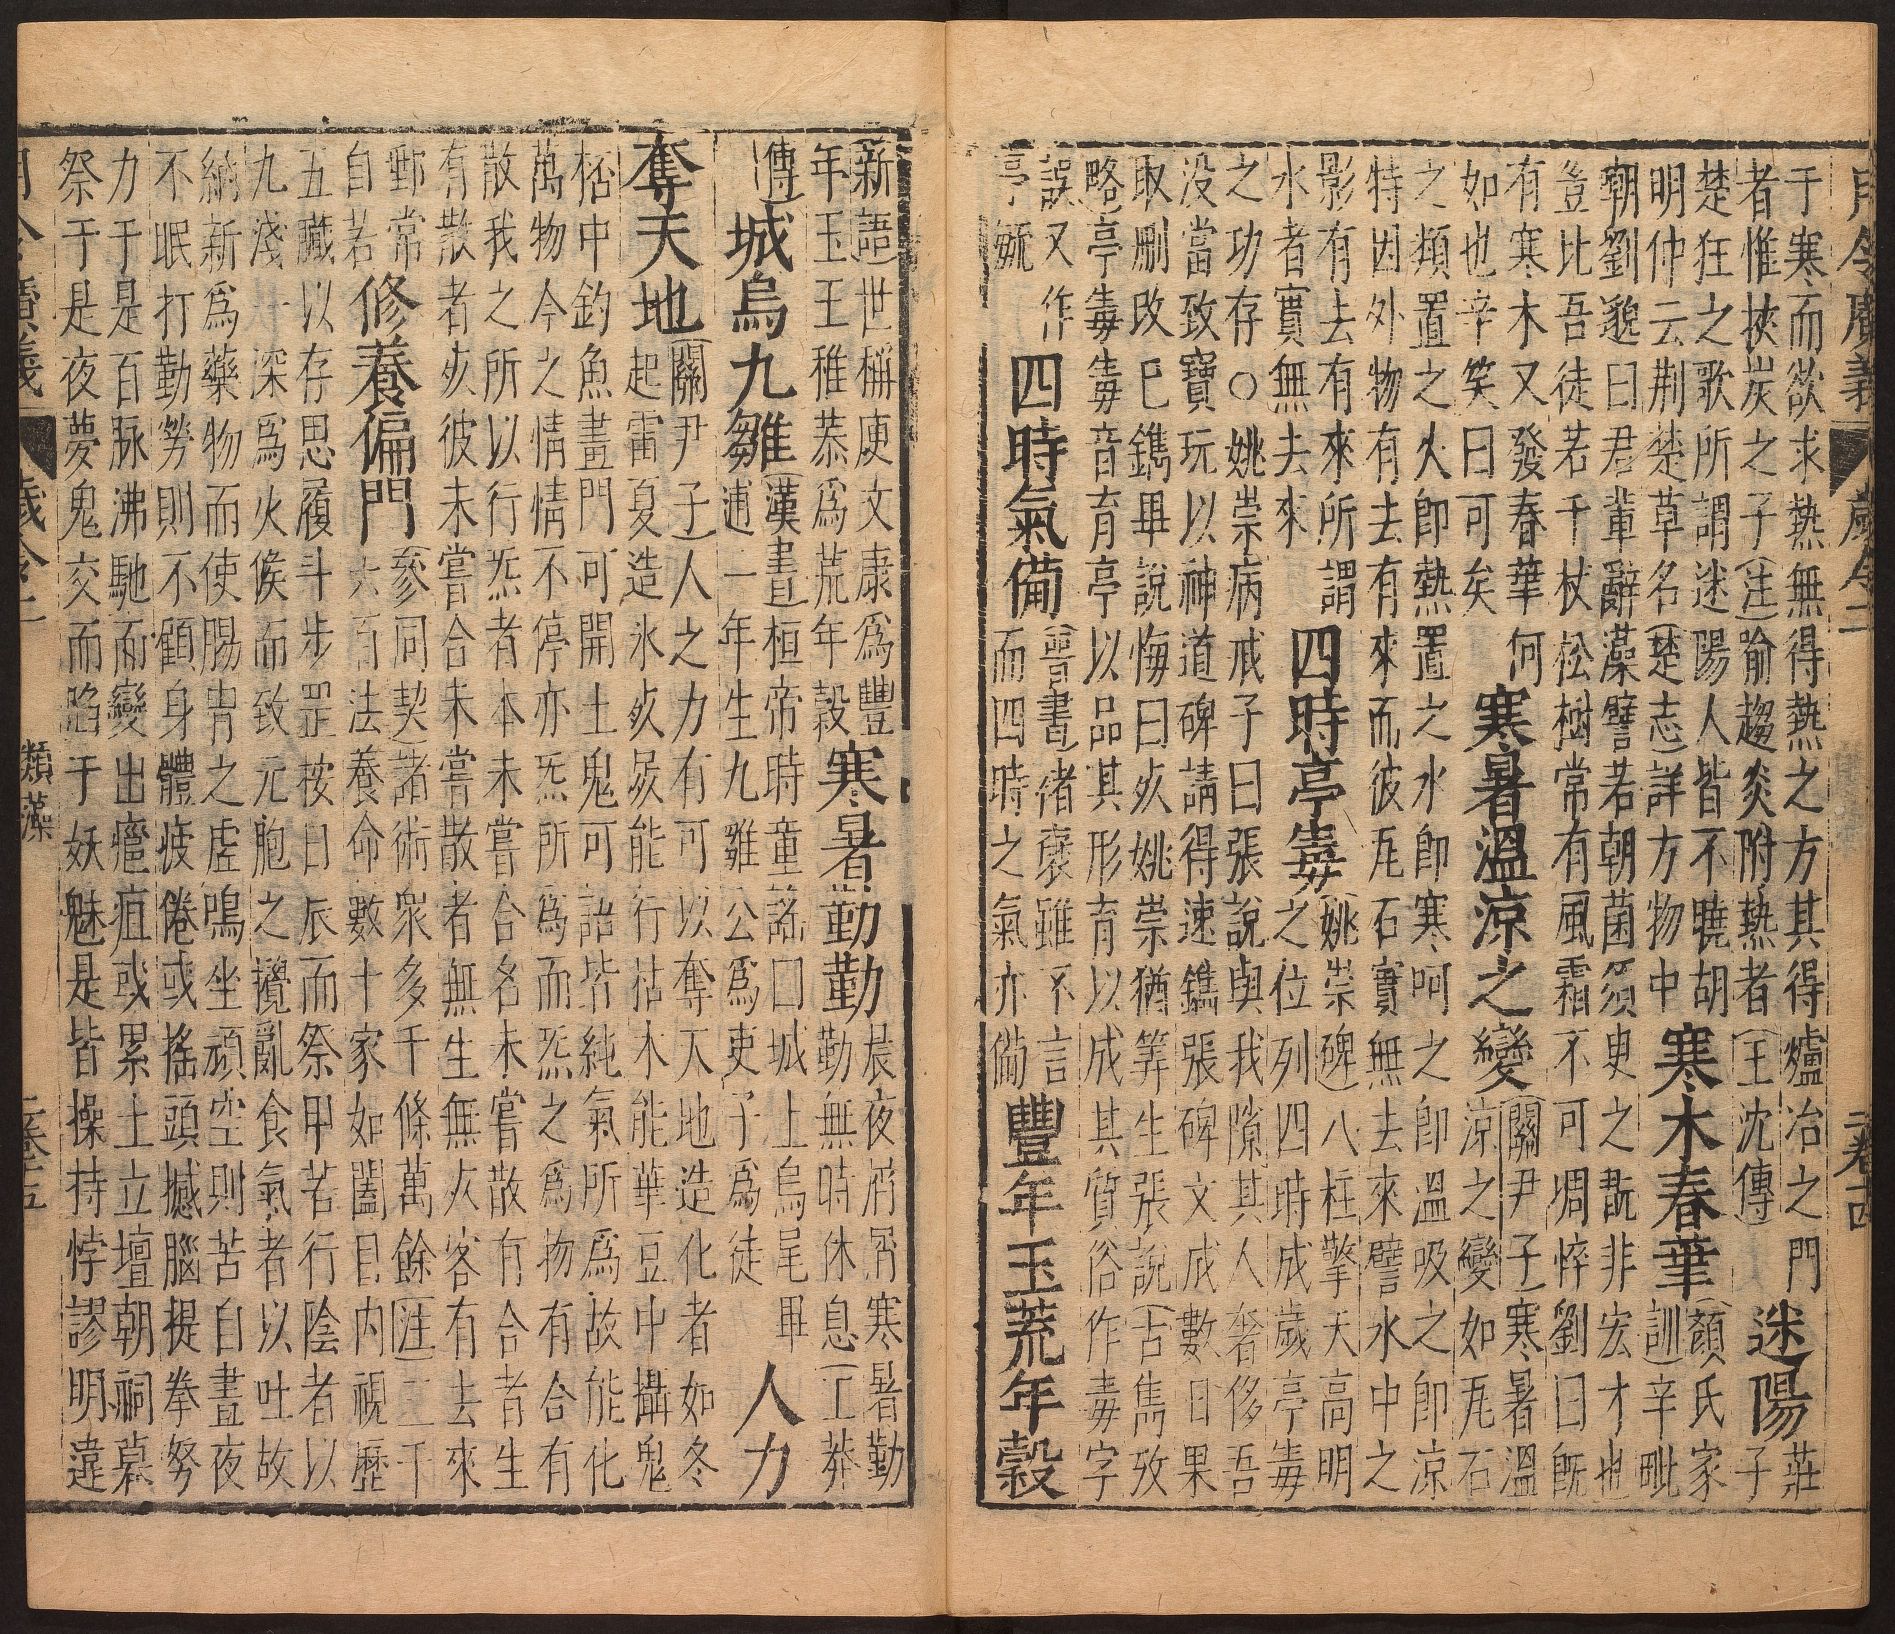 月令廣義 歲令二 二卷十四
于寒而欲求熱無得熱之方其得爐冶之門
者惟挾炭之子(注)喻趨炎附熱者(王沈傳)
迷陽
莊
子
楚狂之歌所謂迷陽人皆不曉胡
明仲云荆楚草名(楚志)詳方物中
寒木春華
(顏氏家
訓)辛毗
朝劉邈曰君輩辭藻譬若朝菌須臾之翫非宏才也
豈比吾徒若千杖松樹常有風霜不可凋悴劉曰旣
有寒木又發春華何
如也辛笑曰可矣
寒暑溫涼之變
(關尹子)寒暑溫
涼之變如瓦石
之類置之火即熱置之水即寒呵之即溫吸之即涼
特因外物有去有來而彼瓦石實無去來譬水中之
影有去有來所謂
水者實無去來
四時亭毒
(姚崇碑)八柱擎天高明
之位列四時成歲亭毒
之功存○姚崇病戒子曰張說與我隙其人奢侈吾
没當致寶玩以神道碑請得速鐫張碑文成數日果
取刪改已鐫畢說悔曰死姚崇猶筭生張說(古雋攷
略)亭毒毒音育亭以品其形育以成其質俗作毒字
誤又作
亭毓
四時氣備
(晉書)褚裒雖不言
而四時之氣亦備
豐年玉荒年穀
新語)世稱庾文康爲豐
年玉王稚恭爲荒年穀
寒暑勤勤
晨夜屑屑寒暑勤
勤無時休息(王莽
傳)
城烏九雛
(漢書)桓帝時童謠曰城上烏尾畢
逋一年生九雛公爲吏子爲徒
人力
奪天地
(關尹子)人之力有可以奪天地造化者如冬
起雷夏造氷死屍能行枯木能華豆中攝鬼
桮中釣魚畫門可開土鬼可語皆純氣所爲故能化
萬物今之情情不停亦炁所爲而炁之爲物有合有
散我之所以行炁者本未嘗合名未嘗散有合者生
有散者死彼未嘗合未嘗散者無生無死客有去來
郵常
自若
修養偏門
(參同契)諸術衆多千條萬餘(注)二千
六百法養命數十家如闔目內視歷
五臟以存思履斗步罡按日辰而祭甲若行陰者以
九淺一深爲火候而致元胞之攪亂食氣者以吐故
納新爲藥物而使腸胃之虛鳴坐頑空則苦自晝夜
不眠打勤勞則不顧身體疲倦或搖頭撼腦提拳努
力于是百脉沸馳而變出癰疽或累土立壇朝祠暮
祭于是夜夢鬼交而陷于妖魅是皆操持悖謬明違
月令廣義 歲令二 類藻 二卷十五